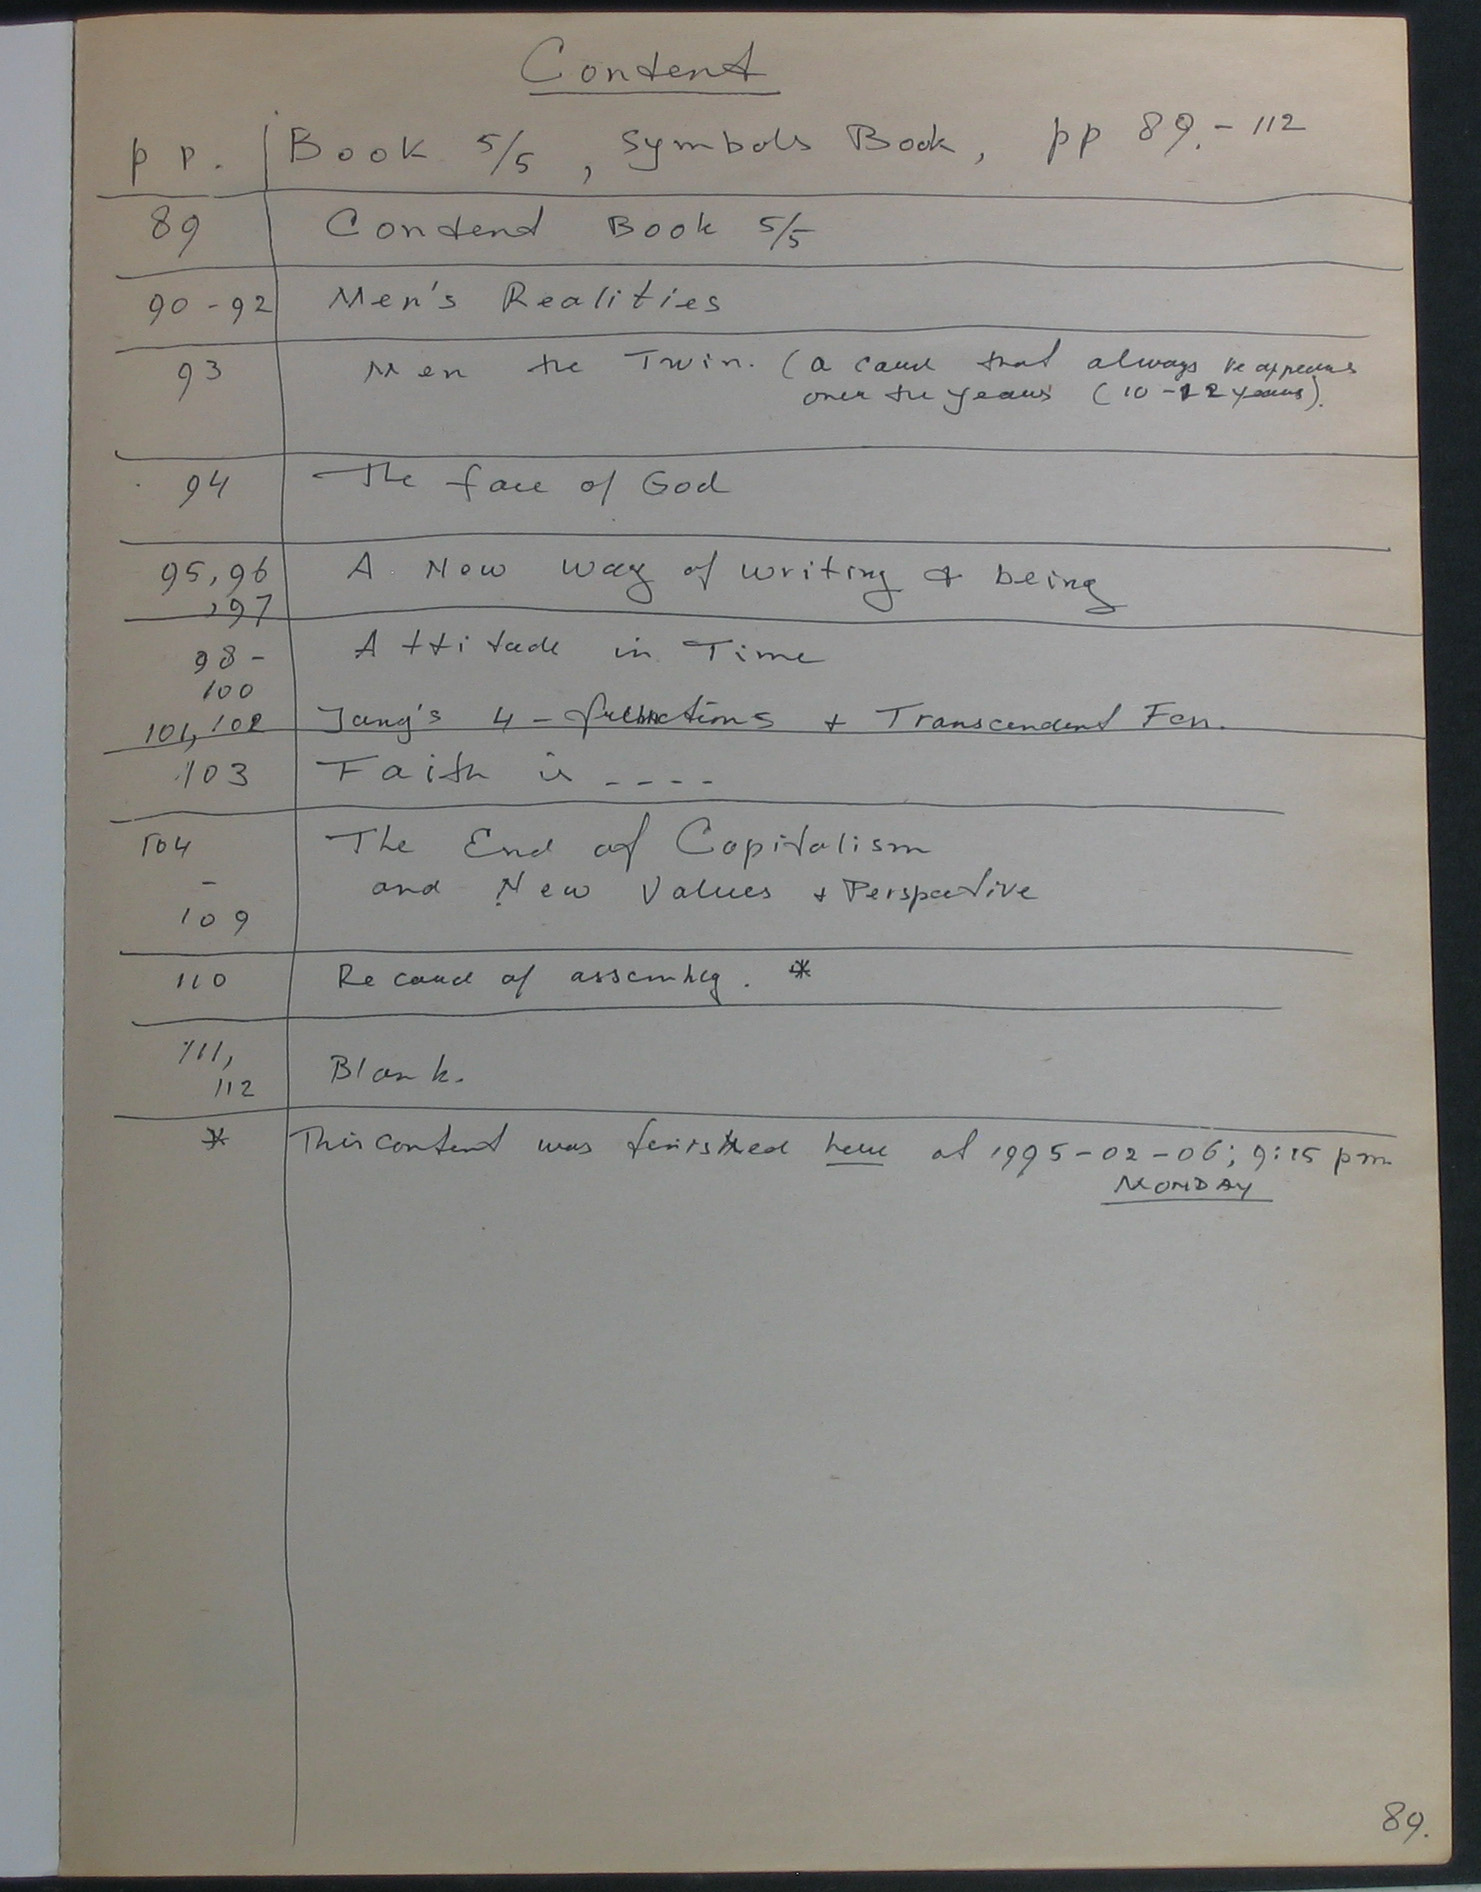 Content
pp. Book 5/5, Symbols Book, pp 89.-112
89 Contend Book 5/5
90-92 Men's Realities
93 Men the Twin. (a card that always reappears
over the years (10-12 years).
94 The face of God
95,96 A New way of writing & being
,97
98- Attitude in Time
100
101,102 Jung's 4-functions + Transcendent Fcn.
103 Faith is ----
104 The End of Capitalism
- and New Values + Perspective
109
110 Record of assembly. *
111, Blank.
112
* This content was finished here at 1995-02-06; 9:15 pm
MONDAY
89.